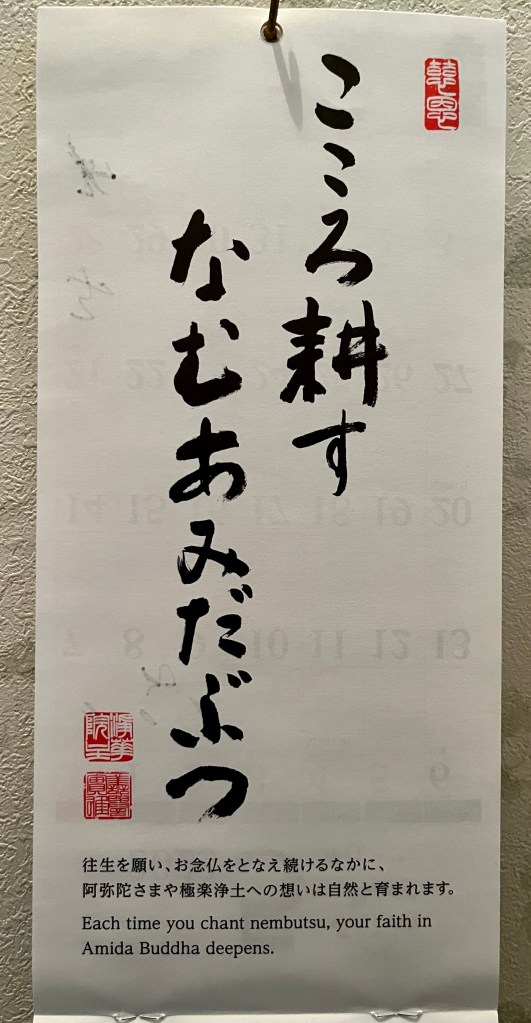 こころ耕す
なむあみだぶつ
往生を願い、お念仏をとなえ続けるなかに、
阿弥陀さまや極楽浄土への想いは自然と育まれます。
Each time you chant nembutsu, your faith in
Amida Buddha deepens.